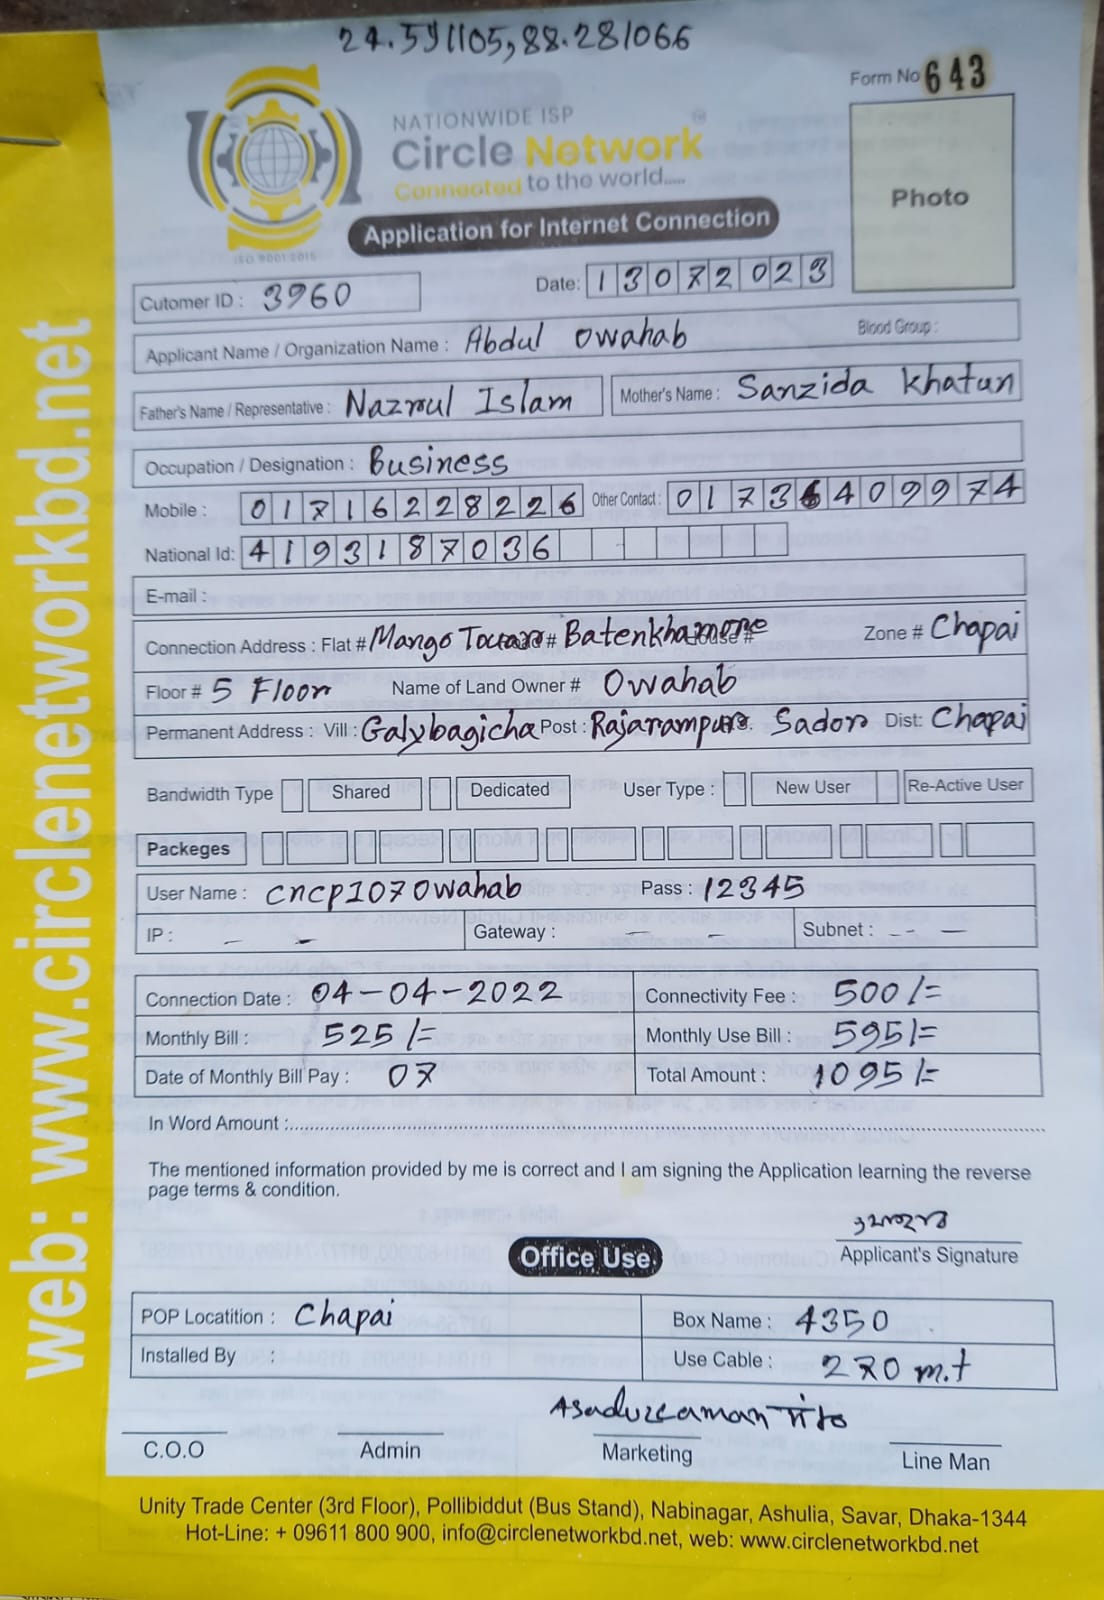 24.591105,88.281066
Form No 643
NATIONWIDE ISP
Circle Network
Connected to the world.....
Application for Internet Connection
Photo
ISO 9001:2015
Cutomer ID : 3960
Date: 13072023
Applicant Name / Organization Name : Abdul Owahab Blood Group :
Father's Name / Representative : Nazrul Islam Mother's Name : Sanzida Khatun
Occupation / Designation : Business
Mobile : 01716228226 Other Contact : 01736409974
National Id: 4193187036
E-mail :
Connection Address : Flat # Mango Tower Batenkhamore Zone # Chapai
Floor # 5 Floor Name of Land Owner # Owahab
Permanent Address : Vill : Galybagicha Post : Rajarampur Sador Dist: Chapai
Bandwidth Type Shared Dedicated User Type : New User Re-Active User
Packeges
User Name : cncp107owahab Pass : 12345
IP : - - Gateway : - - Subnet : - - -
Connection Date : 04-04-2022 Connectivity Fee : 500/=
Monthly Bill : 525/= Monthly Use Bill : 595/=
Date of Monthly Bill Pay : 07 Total Amount : 1095/=
In Word Amount :
The mentioned information provided by me is correct and I am signing the Application learning the reverse
page terms & condition.
ওহাব
Applicant's Signature
Office Use
POP Locatition : Chapai Box Name : 4350
Installed By : Use Cable : 270 m.t
Asaduzzaman
C.O.O Admin Marketing Line Man
Unity Trade Center (3rd Floor), Pollibiddut (Bus Stand), Nabinagar, Ashulia, Savar, Dhaka-1344
Hot-Line: + 09611 800 900, info@circlenetworkbd.net, web: www.circlenetworkbd.net
web: www.circlenetworkbd.net